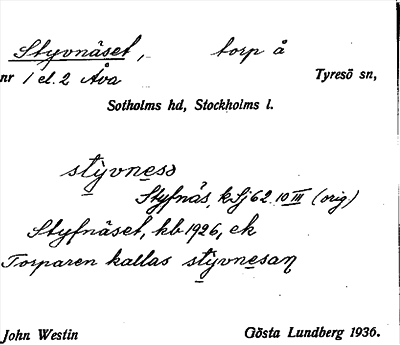 Styvnäset, torp å
nr 1 el. 2 Åva Tyresö sn,
Sotholms hd, Stockholms l.
stỳvnesə
Styfnäs, k Sj 62 10 III (orig)
Styfnäset, kb 1926, ek
Torparen kallas stỳvnesaη
John Westin Gösta Lundberg 1936.